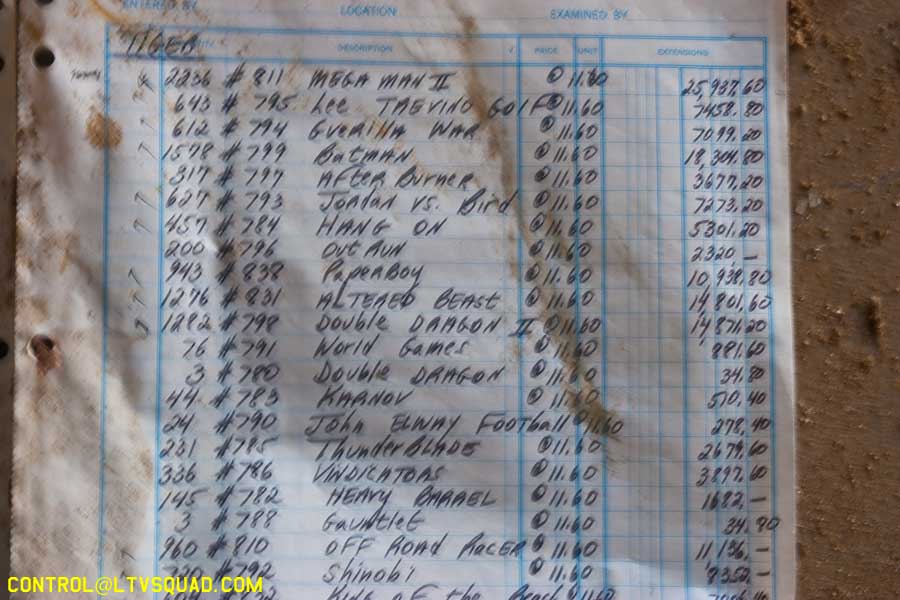 ENTERED BY LOCATION EXAMINED BY
TIGER DESCRIPTION √ PRICE UNIT EXTENSIONS
2236 # 811 MEGA MAN II @ 11.60 25,937.60
643 # 795 Lee TREVINO GOLF @ 11.60 7458.80
612 # 794 GUERILLA WAR @ 11.60 7099.20
1578 # 799 BATMAN @ 11.60 18,304.80
317 # 797 AFTER BURNER @ 11.60 3677.20
627 # 793 JORDAN VS. Bird @ 11.60 7273.20
457 # 784 HANG ON @ 11.60 5301.20
200 # 796 OUT RUN @ 11.60 2320.—
943 # 838 PAPERBOY @ 11.60 10,938.80
1276 # 831 ALTERED BEAST @ 11.60 14,801.60
1282 # 798 Double DRAGON II @ 11.60 14,871.20
76 # 791 World Games @ 11.60 881.60
3 # 780 Double DRAGON @ 11.60 34.80
44 # 783 KARNOV @ 11.60 510.40
24 # 790 John ELWAY Football @ 11.60 278.40
231 # 785 ThunderBLADE @ 11.60 2679.60
336 # 786 VINDICATORS @ 11.60 3897.60
145 # 782 HEAVY BARREL @ 11.60 1682.—
3 # 788 Gauntlet @ 11.60 34.80
960 # 810 OFF ROAD RACER @ 11.60 11,136.—
720 # 792 Shinobi @ 11.60 8352.—
King of the Beach @ 11.60
CONTROL@LTVSQUAD.COM